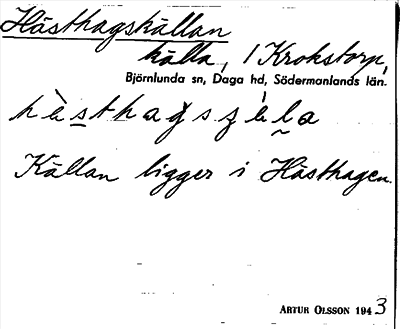 Hästhagskällan
källa, 1 Krokstorp,
Björnlunda sn, Daga hd, Södermanlands län.
Källan ligger i Hästhagen.
ARTUR OLSSON 1943